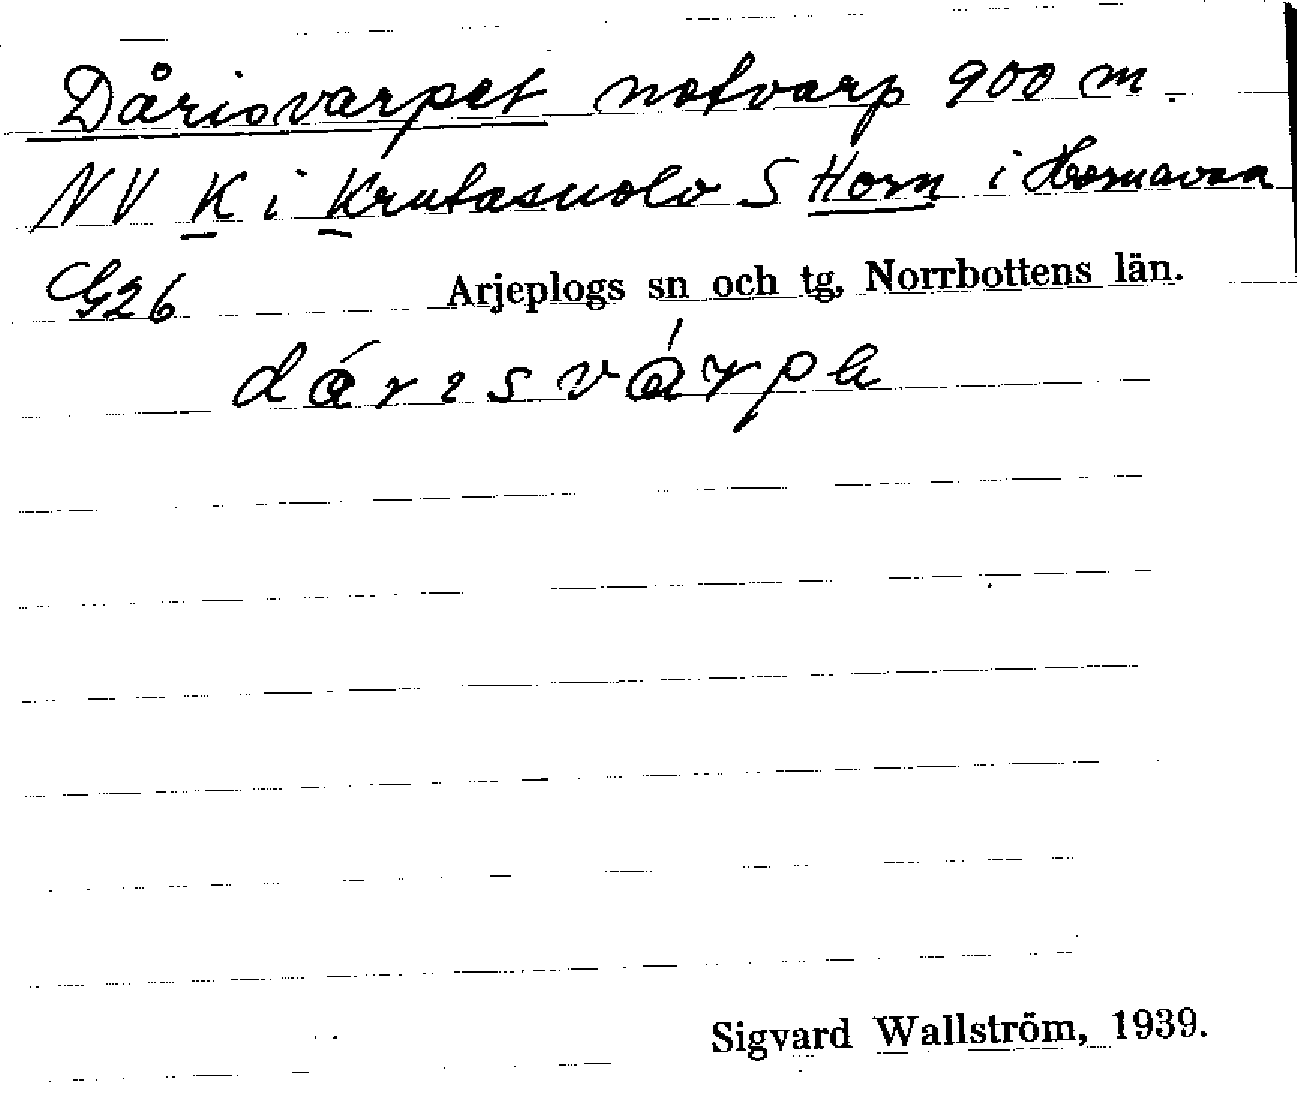 Dårisvarpet notvarp 900 m.
NV K i Krutasuolo S Horn i Hornavan
G26 Arjeplogs sn och tg, Norrbottens län.
dárisvárpa
Sigvard Wallström, 1939.